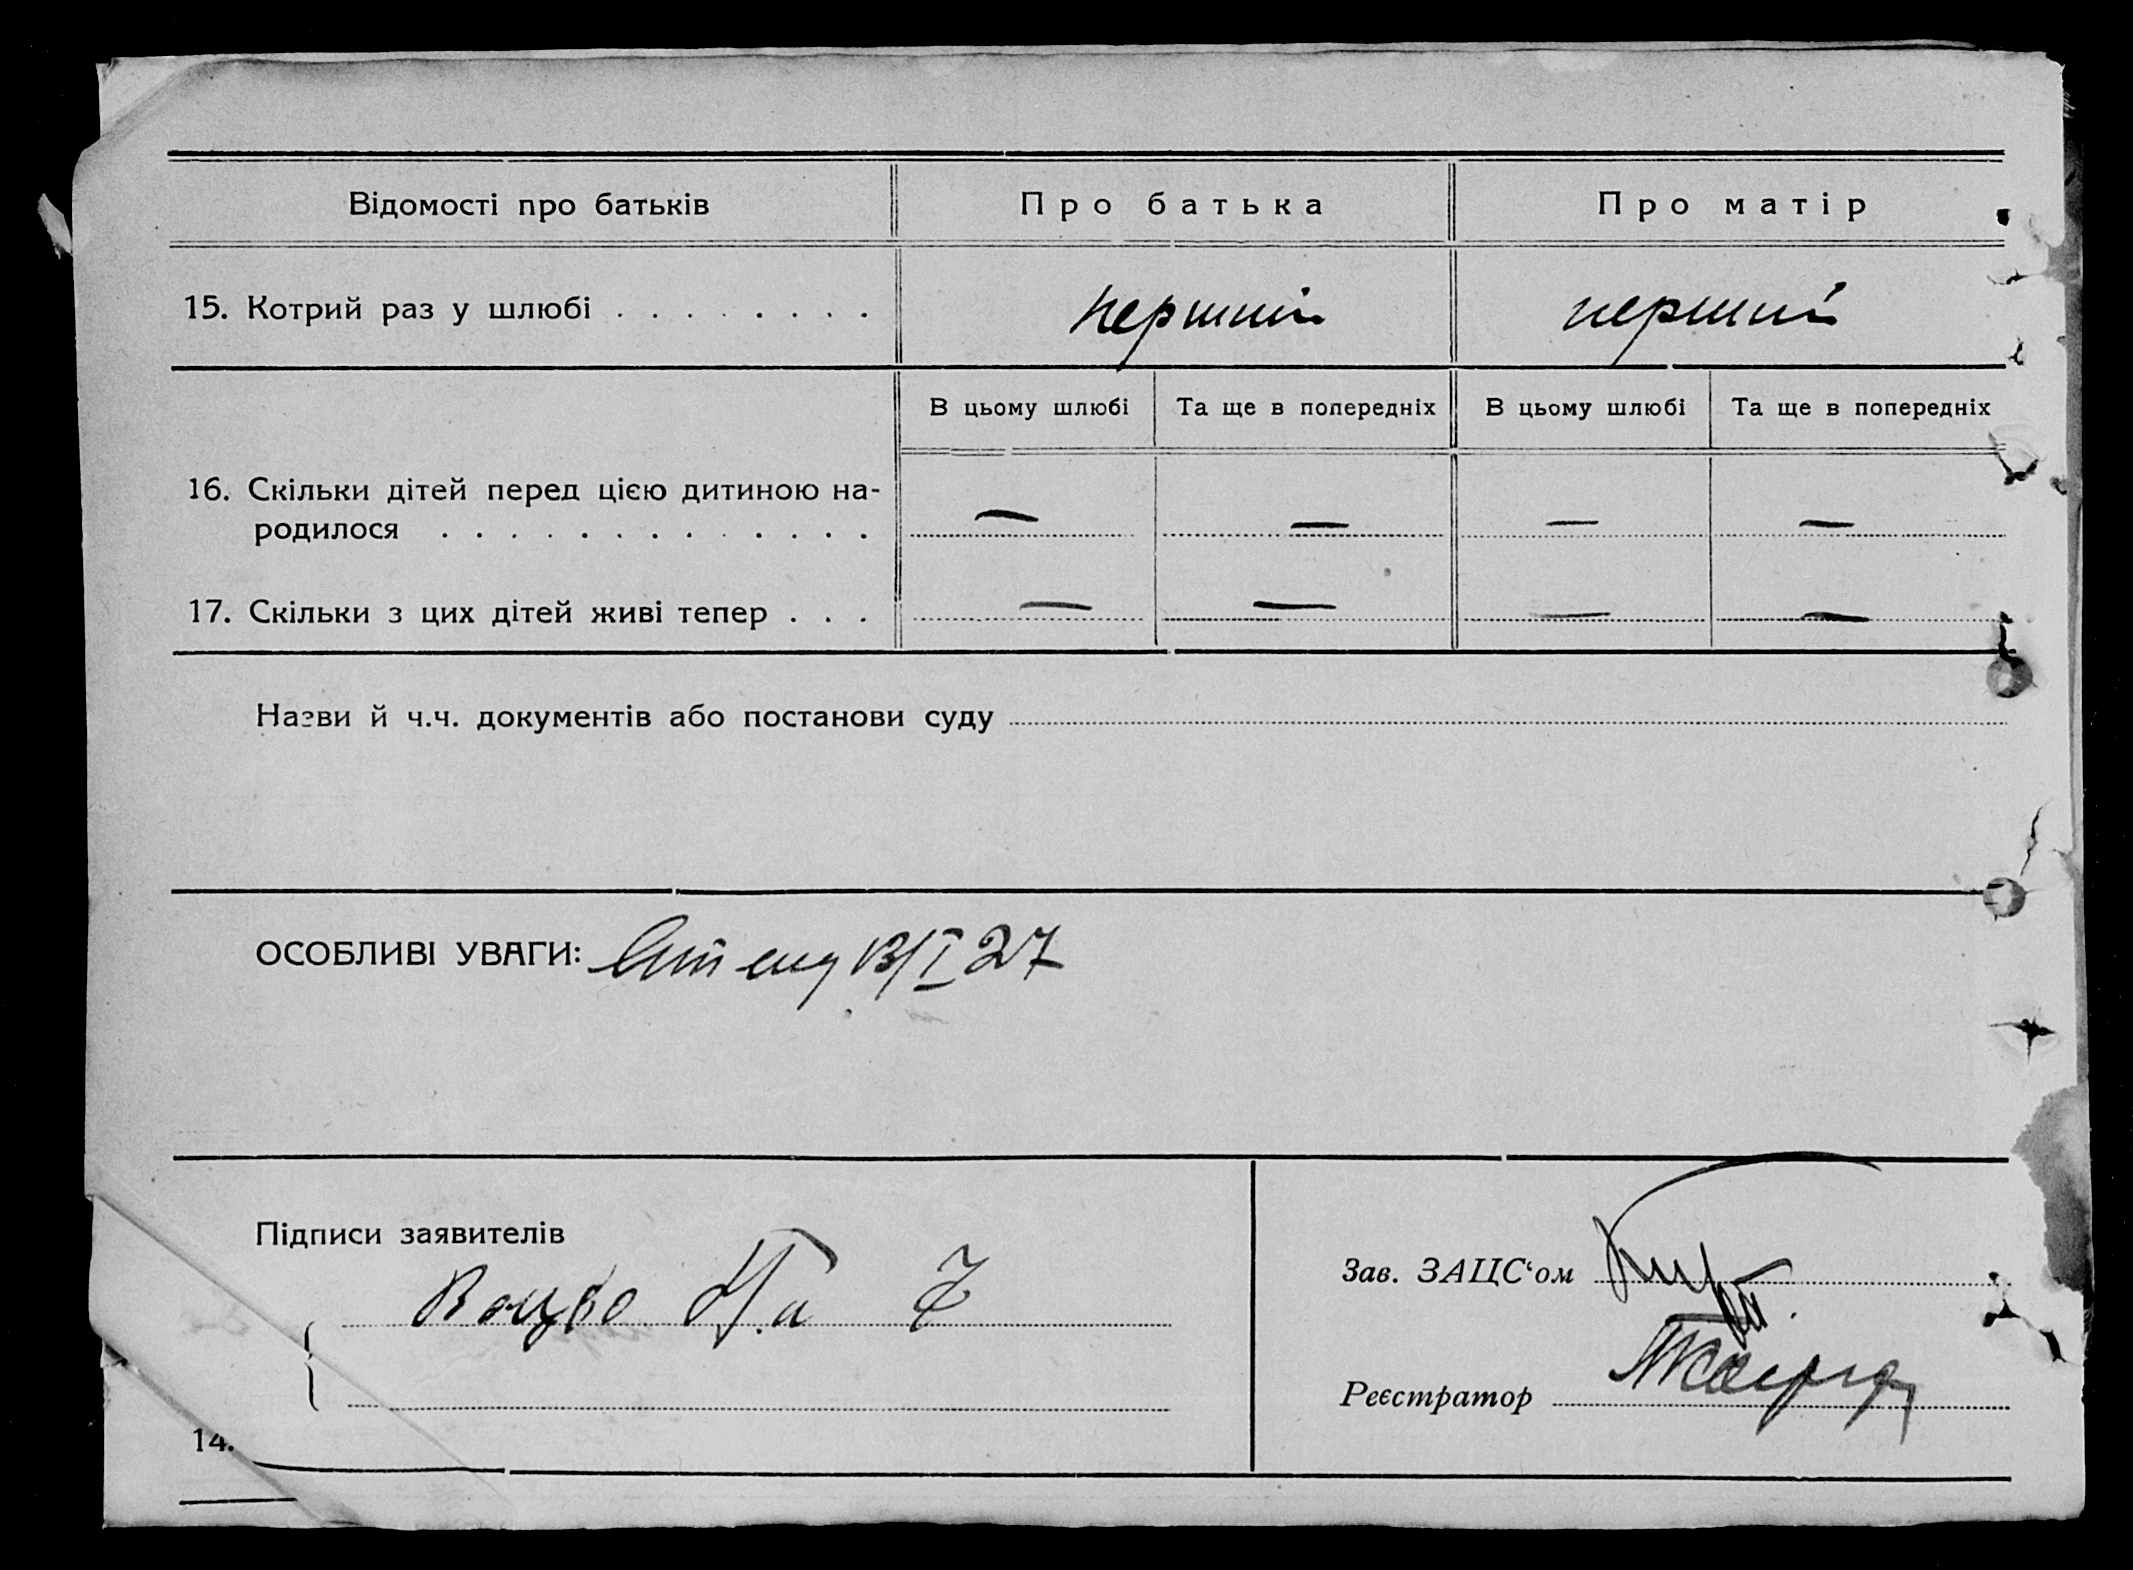 Відомості про батьків Про батька Про матір
15. Котрий раз у шлюбі . . . . . . . . перший перший
В цьому шлюбі Та ще в попередніх В цьому шлюбі Та ще в попередніх
16. Скільки дітей перед цією дитиною на-
родилося . . . . . . . . . . . . . — — — —
17. Скільки з цих дітей живі тепер . . . — — — —
Назви й ч.ч. документів або постанови суду
ОСОБЛИВІ УВАГИ: 13/I 27
Підписи заявителів
Зав. ЗАЦС‘ом
Реєстратор
14.